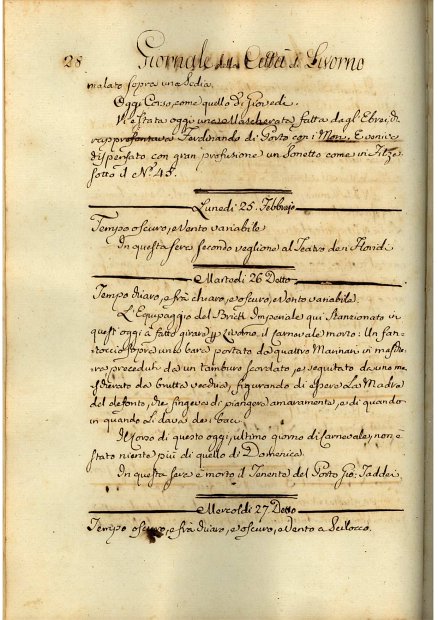 28 Giornale della Città di Livorno
malato sopra una Sedia.
Oggi Corso, come quello di Giovedì.
Vi è stata oggi una Mascherata fatta dagl'Ebrei, di
rappresentava Ferdinando di Porto con i Mori, e venive
dispensato con gran profusione un Sonetto come in Filze
sotto il N.º 45.
Lunedì 25. Febbrajo
Tempo oscuro, e Vento variabile
In questa sera secondo veglione al Teatro dei Floridi
Martedì 26 Detto
Tempo chiaro, e frà chiaro, e oscuro, e Vento variabile.
L'Equipaggio del Brick Imperiale qui stanzionato in
quest'oggi à fatto girare p Livorno il Carnevale morto: Un fan-
toccio sopra una bara portato da quattro Marinari in masche-
ra, preceduti da un tamburo scordato, e seguitato da uno ma-
scherato da brutta vecchia, figurando di essere La Madre
del defonto, che fingeva di piangere amaramente, e di quando
in quando Li dava dei baci.
Il Corso di questo oggi, ultimo giorno di Carnevale, non è
stato niente più di quello di Domenica.
In questa sera è morto il Tenente del Porto Gio: Taddei.
Mercoldì 27 Detto
Tempo oscuro, e frà chiaro, e oscuro, e Vento a Scilocco.